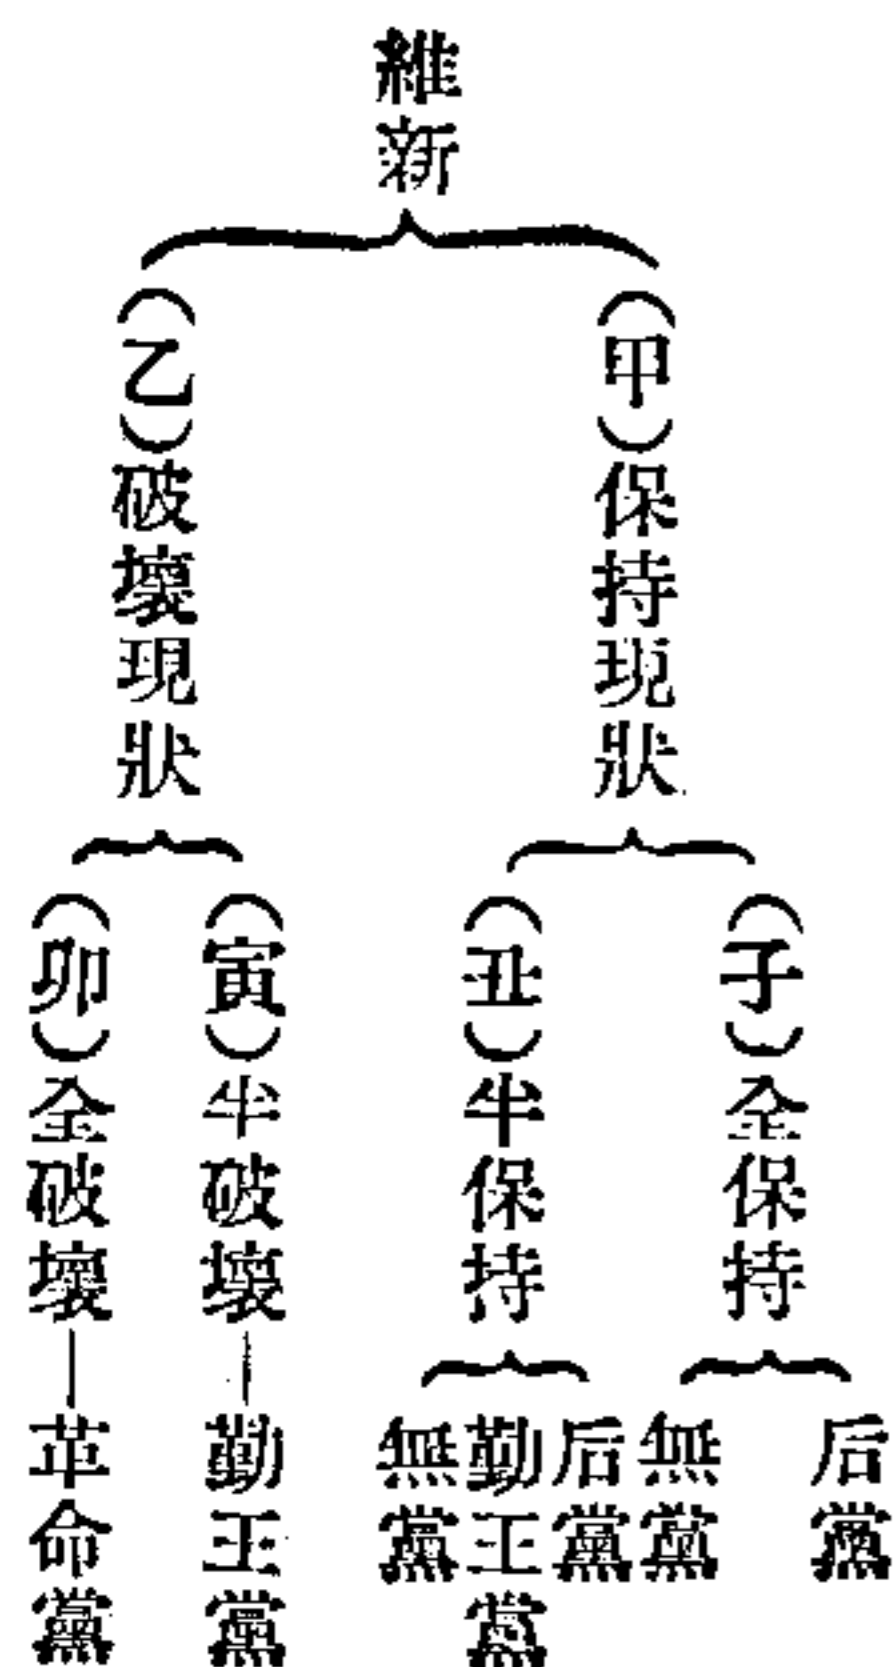 維新
（甲）保持現狀
（子）全保持
后黨
無黨
（丑）半保持
后黨
勤王黨
無黨
（乙）破壞現狀
（寅）半破壞—勤王黨
（卯）全破壞—革命黨